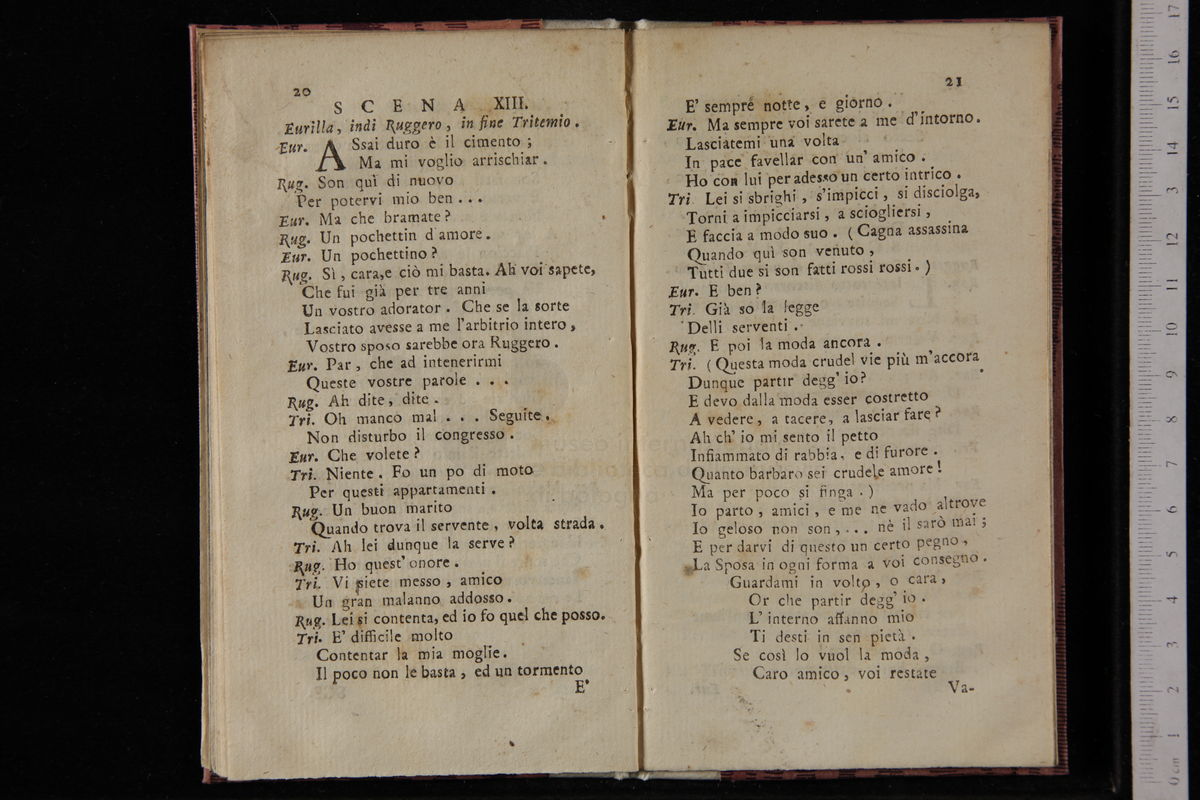 20
SCENA XIII.
Eurilla, indi Ruggero, in fine Tritemio.
Eur. ASsai duro è il cimento;
Ma mi voglio arrischiar.
Rug. Son quì di nuovo
Per potervi mio ben...
Eur. Ma che bramate?
Rug. Un pochettin d'amore.
Eur. Un pochettino?
Rug. Sì, cara, e ciò mi basta. Ah voi sapete,
Che fui già per tre anni
Un vostro adorator. Che se la sorte
Lasciato avesse a me l'arbitrio intero,
Vostro sposo sarebbe ora Ruggero.
Eur. Par, che ad intenerirmi
Queste vostre parole...
Rug. Ah dite, dite.
Tri. Oh manco mal... Seguite.
Non disturbo il congresso.
Eur. Che volete?
Tri. Niente. Fo un po di moto
Per questi appartamenti.
Rug. Un buon marito
Quando trova il servente, volta strada.
Tri. Ah lei dunque la serve?
Rug. Ho quest' onore.
Tri. Vi siete messo, amico
Un gran malanno addosso.
Rug. Lei si contenta, ed io fo quel che posso.
Tri. E' difficile molto
Contentar la mia moglie.
Il poco non le basta, ed un tormento
E'
21
E' sempre notte, e giorno.
Eur. Ma sempre voi sarete a me d'intorno.
Lasciatemi una volta
In pace favellar con un' amico.
Ho con lui per adesso un certo intrico.
Tri Lei si sbrighi, s'impicci, si disciolga,
Torni a impicciarsi, a sciogliersi,
E faccia a modo suo. (Cagna assassina
Quando quì son venuto,
Tutti due si son fatti rossi rossi.)
Eur. E ben?
Tri. Già so la legge
Delli serventi.
Rug. E poi la moda ancora.
Tri. (Questa moda crudel vie più m'accora
Dunque partir degg' io?
E devo dalla moda esser costretto
A vedere, a tacere, a lasciar fare?
Ah ch' io mi sento il petto
Infiammato di rabbia, e di furore.
Quanto barbaro sei crudele amore!
Ma per poco si finga.)
Io parto, amici, e me ne vado altrove
Io geloso non son,... nè il sarò mai;
E per darvi di questo un certo pegno,
La Sposa in ogni forma a voi consegno.
Guardami in volto, o cara,
Or che partir degg' io.
L' interno affanno mio
Ti desti in sen pietà.
Se così lo vuol la moda,
Caro amico, voi restate
Va-